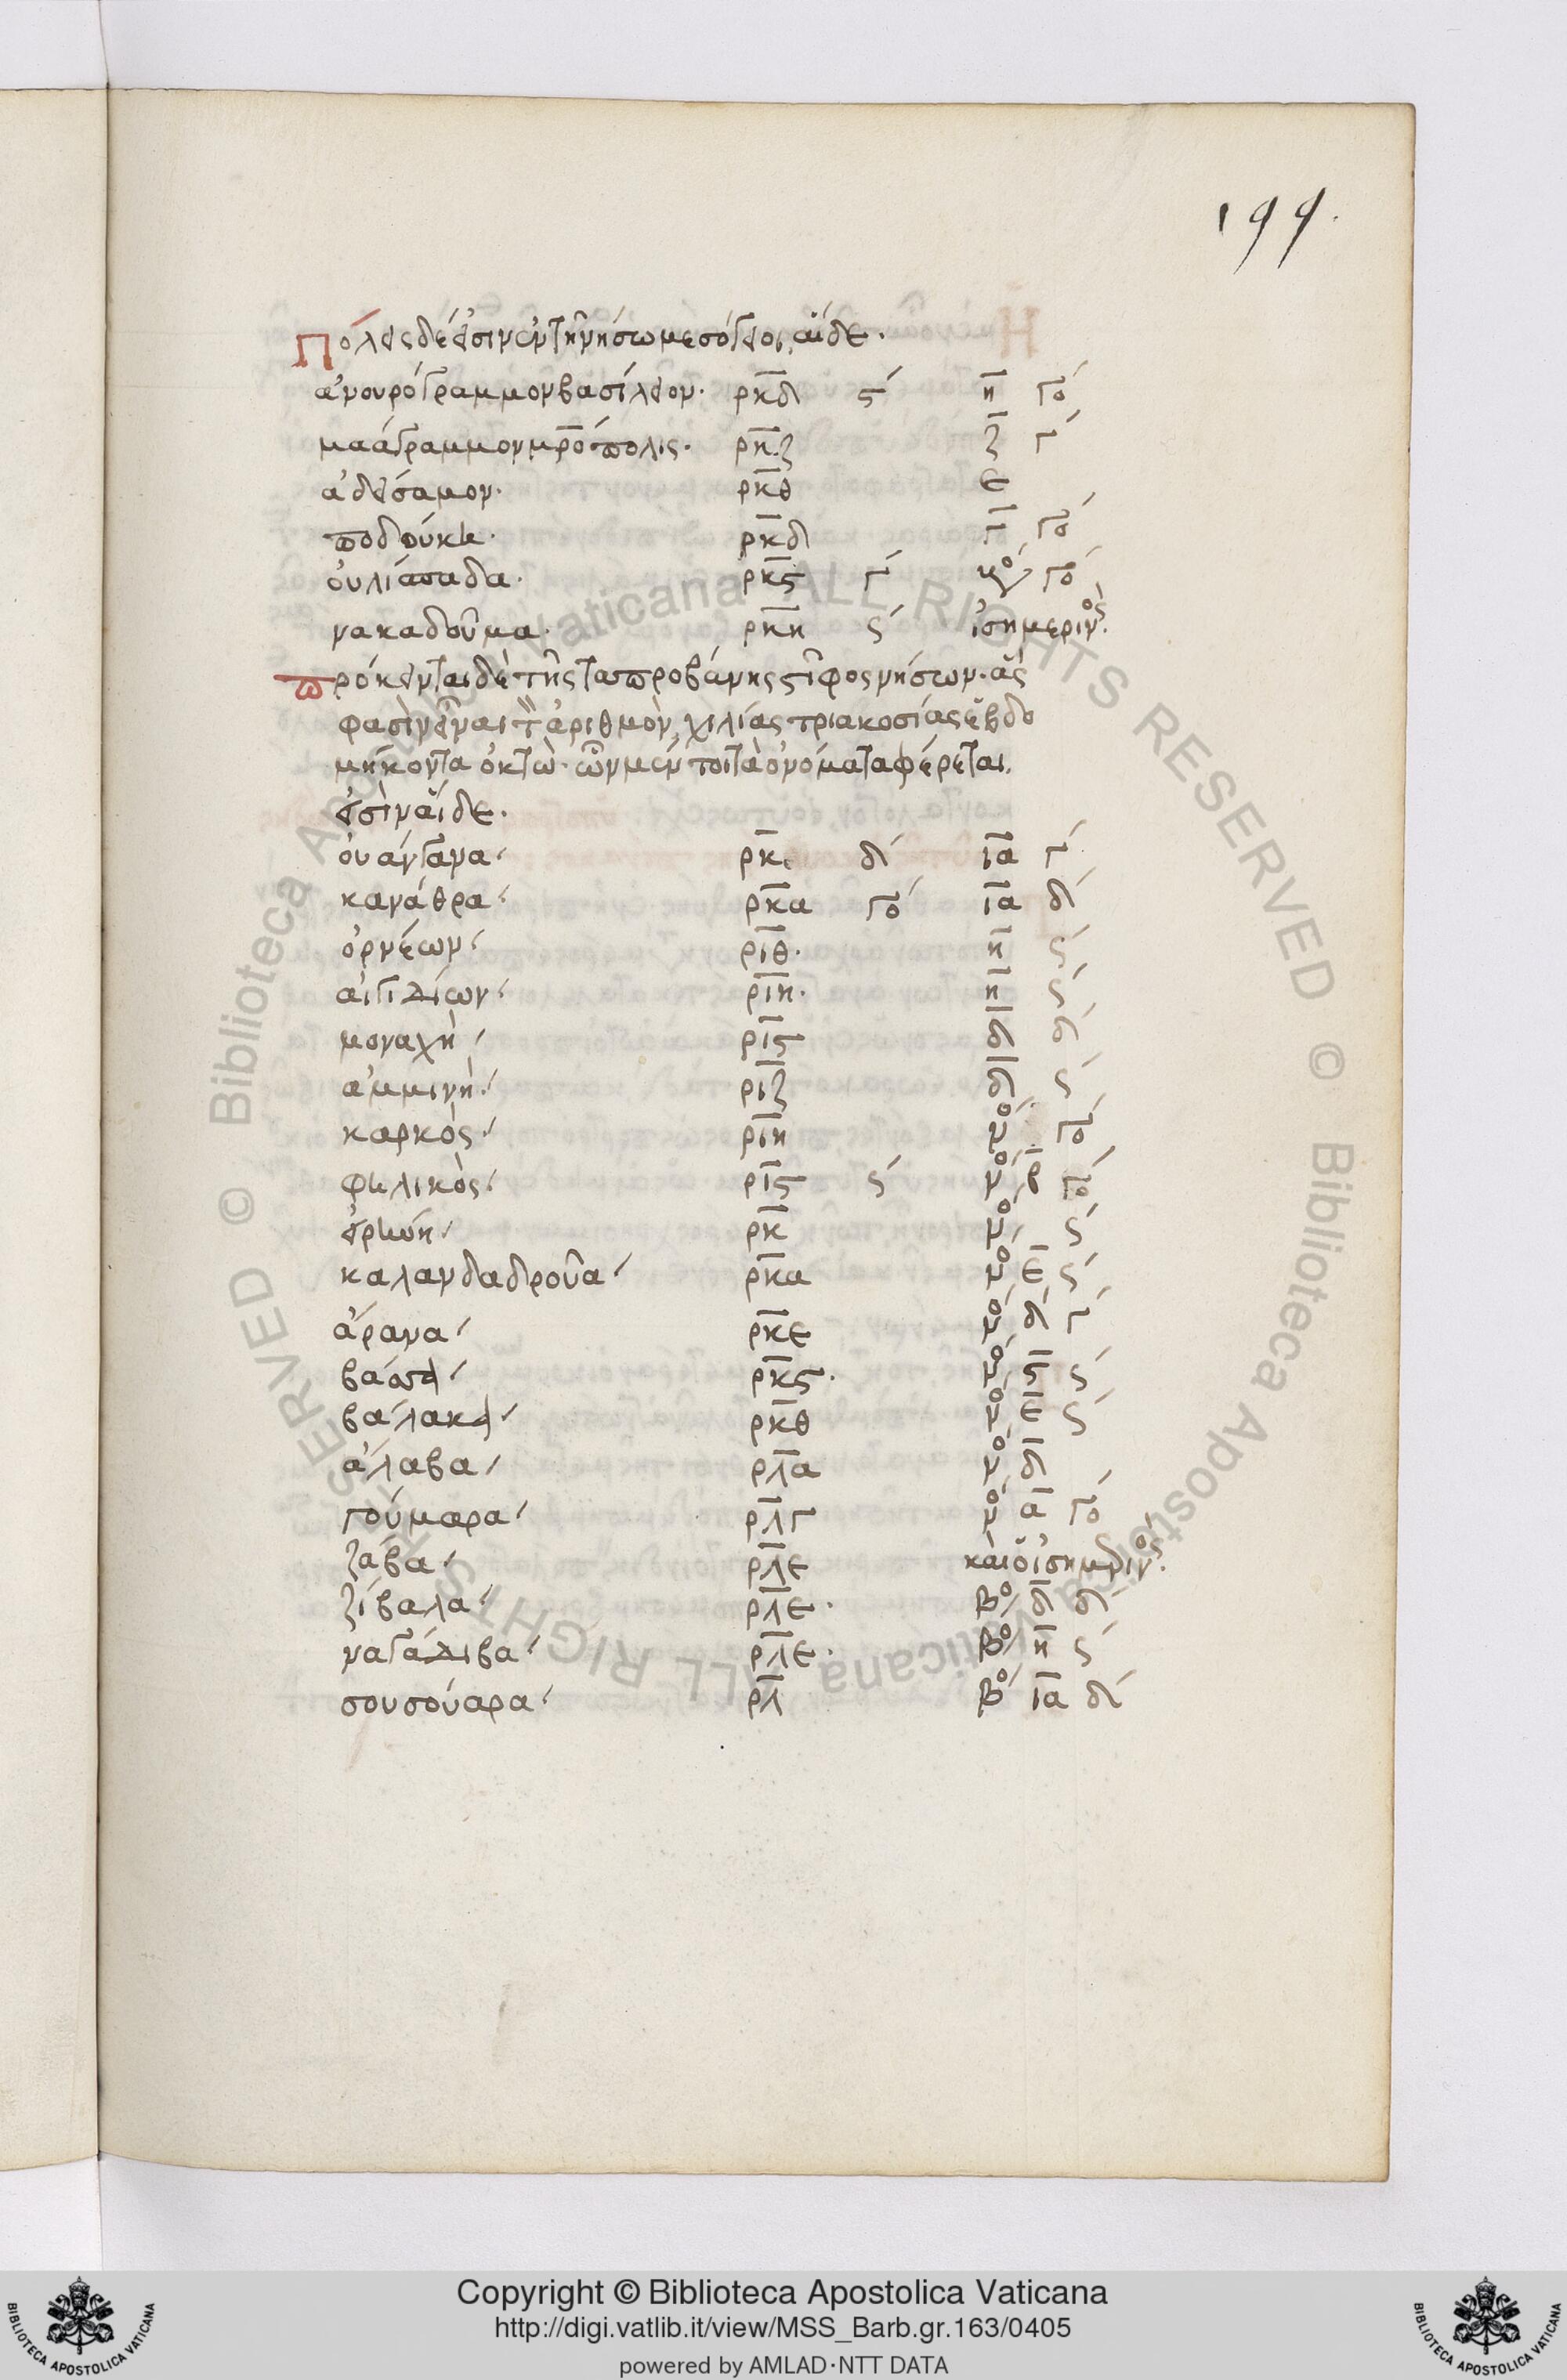 199.
Πόλεις δέ εἰσιν ἐν τῇ νήσω μεσόγειοι, αἵδε.
ἀνουρόγραμμον βασίλειον. ρκδ ϛ´ η γο´
μαάγραμμον μρόπολις. ρκζ ζ γ´
ἀδείσαμον. ρκθ ε
ποδούκη. ρκδ γ γο´
οὐλίσπαδα. ρκϛ γ´ νο´ γο´
νακαδοῦμα. ρκη ϛ´ ἰσημερινός.
πρόκεινται δὲ τῆς ταπροβάνης στῖφος νήσων. ἅς
φασὶν εἶναι τὸν ἀριθμὸν, χιλίας τριακοσίας ἑβδο
μήκοντα ὀκτὼ. ὧν μέν τοι τὰ ὀνόματα φέρεται.
εἰσὶν αἵδε.
οὐάνγανα ρκ δ´ ια γ´
κανάθρα ρκα γο´ ια δ´
ὀρνέων ριθ. η ϛ´
αἰγιδίων ριη. η ϛ´
μοναχὴ ριϛ δ δ´
ἀμμινὴ ριζ δ ϛ´
καρκὸς ριη νο´ γο´
φηλικὸς ριϛ ϛ´ νο´ β γο´
εἰρήνη ρκ νο´ ϛ´
καλανδαδροῦα ρκα νο´ ε ϛ´
ἄρανα ρκε νο´ δ´ γ´
βάσσα ρκϛ. νο´ ϛ ϛ´
βάλακα ρκθ νο´ ε ϛ´
ἄλαβα ρλα νο´ δ
γούμαρα ρλγ νο´ α γο´
ζάβα ρλε καὶ ὁ ἰσημερινός.
ζίβαλα ρλε. βο´ δ δ´
ναγάδιβα ρλε. βο´ η ϛ´
σουσούαρα ρλ βο´ ια δ´
Biblioteca Apostolica Vaticana ALL RIGHTS RESERVED ©
Copyright © Biblioteca Apostolica Vaticana
http://digi.vatlib.it/view/MSS_Barb.gr.163/0405
powered by AMLAD·NTT DATA
BIBLIOTECA APOSTOLICA VATICANA
BIBLIOTECA APOSTOLICA VATICANA